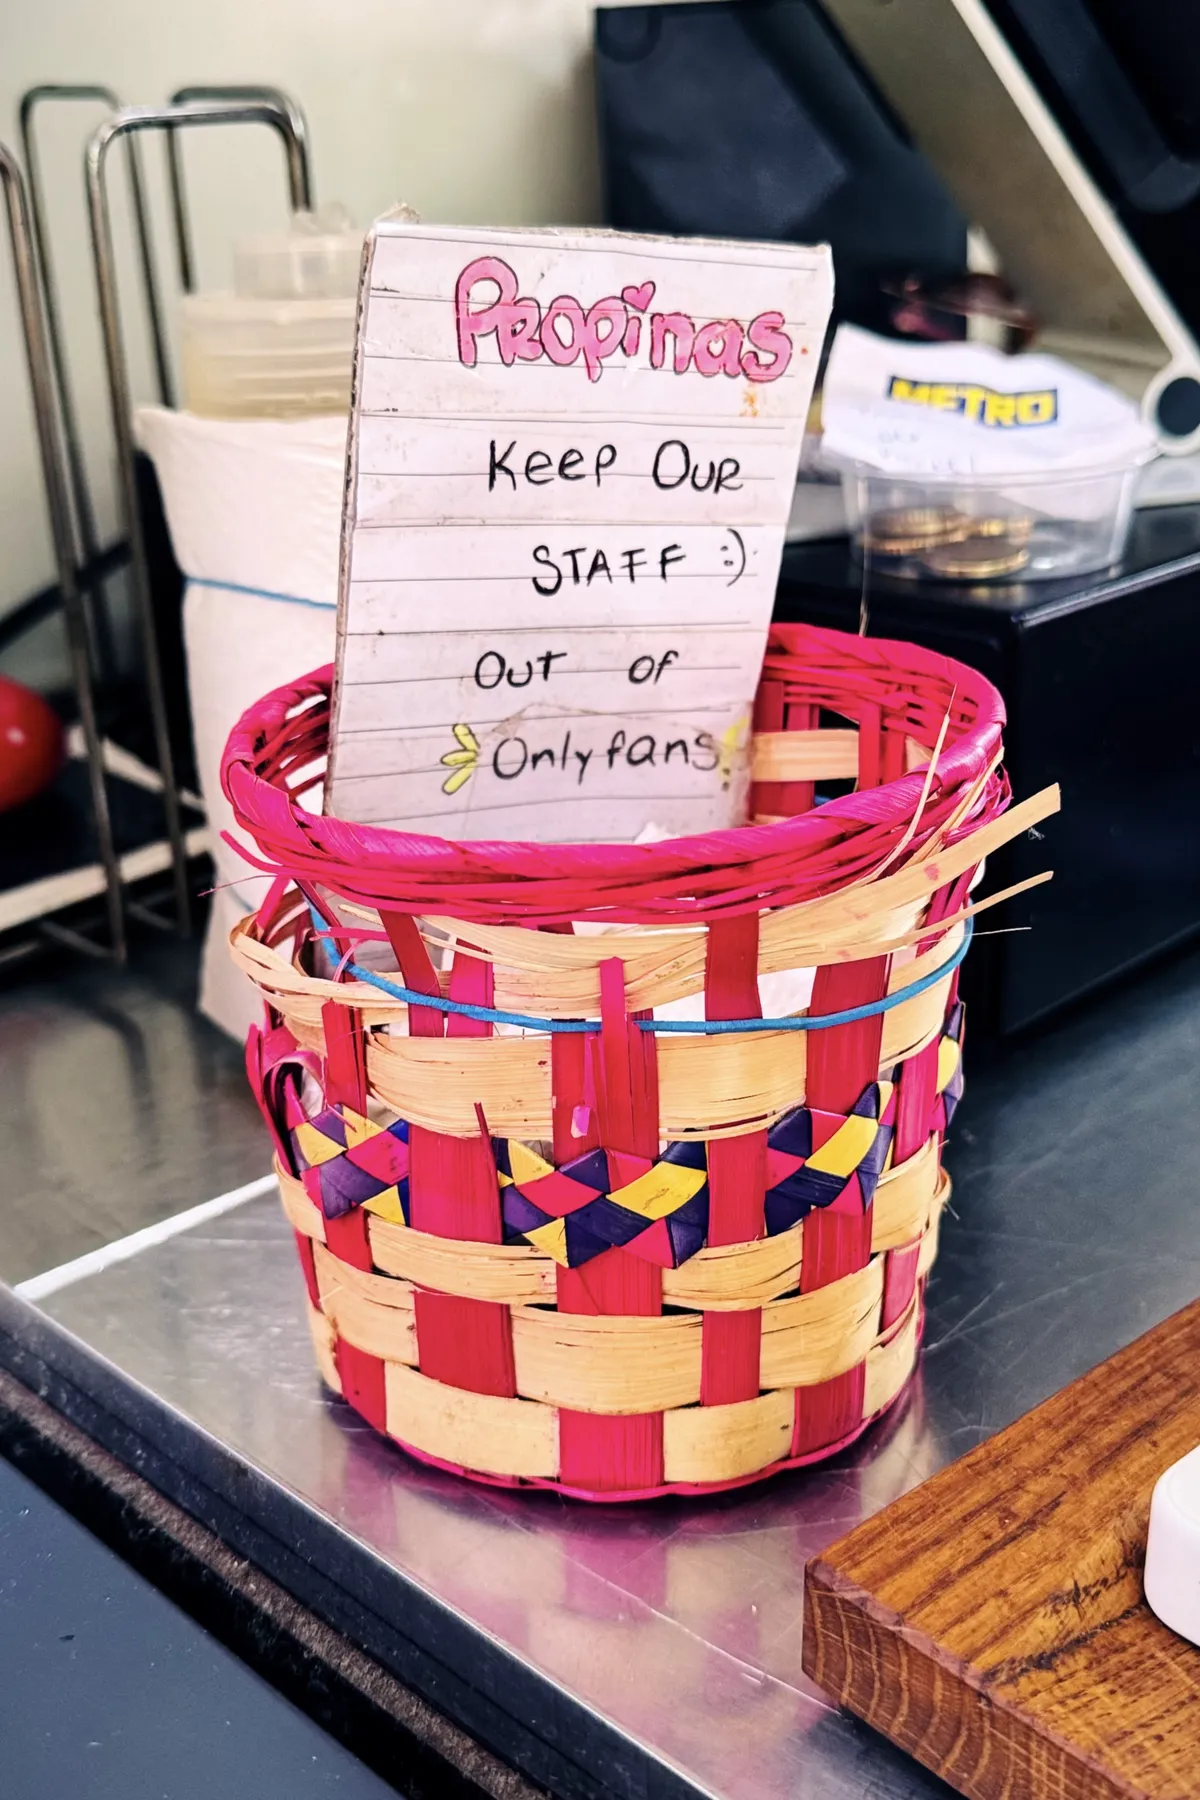 Propinas
Keep Our
STAFF :)
Out of
Onlyfans
METRO